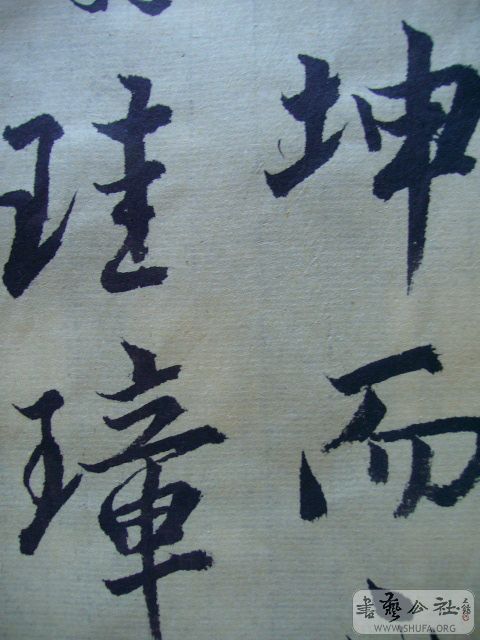 坤而
珪璋
書藝公社
WWW.SHUFA.ORG